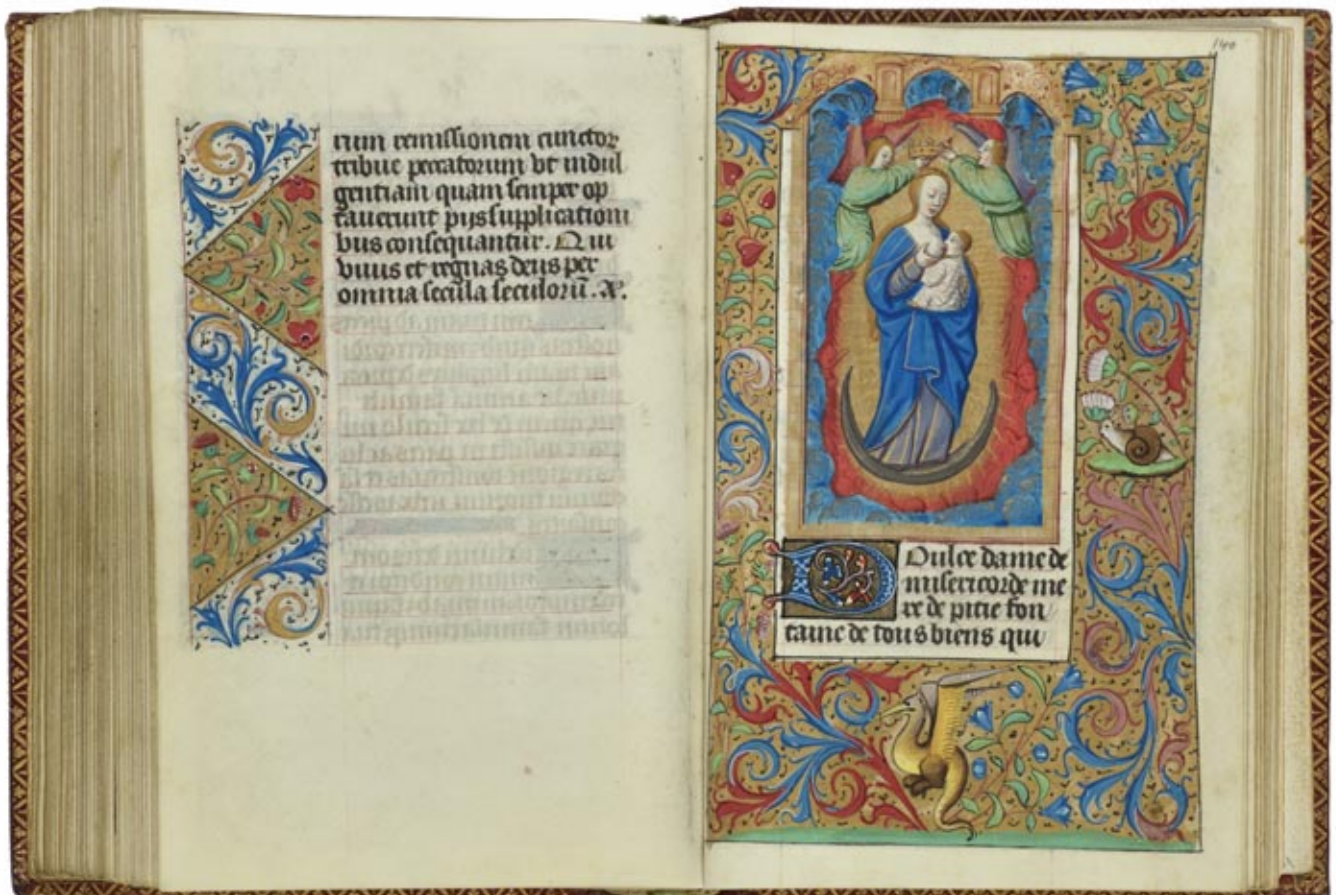 rum remissionem cunctor
tribue peccatorum vt indul
gentiam quam semper op
tauerunt pijs supplicationi
bus consequantur. Qui
viuis et regnas deus per
omnia secula seculorū. A.
140
Doulce dame de
misericorde me
re de pitie fon
taine de tous biens qui